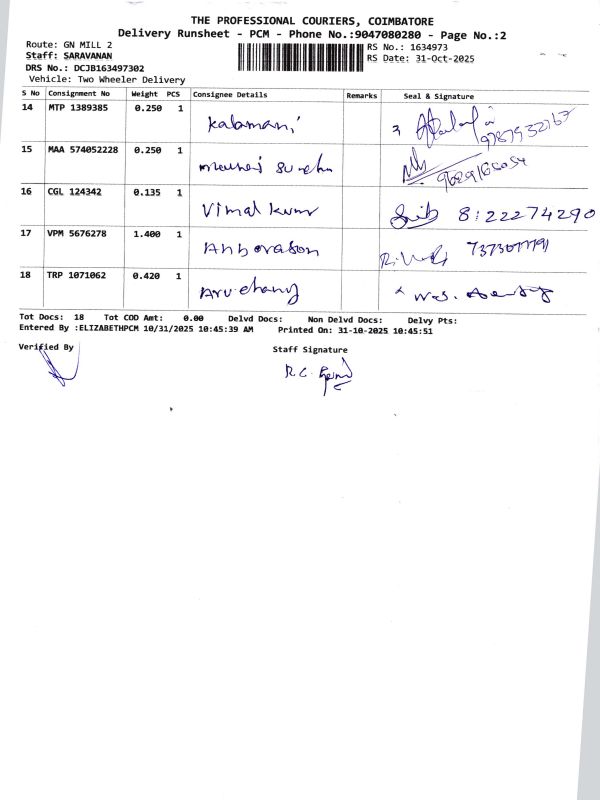 THE PROFESSIONAL COURIERS, COIMBATORE
Delivery Runsheet - PCM - Phone No.:9047080280 - Page No.:2
Route: GN MILL 2
RS No.: 1634973
Staff: SARAVANAN
RS Date: 31-Oct-2025
DRS No.: DCJB163497302
Vehicle: Two Wheeler Delivery
S No Consignment No Weight PCS Consignee Details Remarks Seal & Signature
14 MTP 1389385 0.250 1 Kalamani
15 MAA 574052228 0.250 1
16 CGL 124342 0.135 1 Vimal kumr 8:22274290
17 VPM 5676278 1.400 1 Anbarason
18 TRP 1071062 0.420 1
Tot Docs: 18 Tot COD Amt: 0.00 Delvd Docs: Non Delvd Docs: Delvy Pts:
Entered By :ELIZABETHPCM 10/31/2025 10:45:39 AM Printed On: 31-10-2025 10:45:51
Verified By
Staff Signature